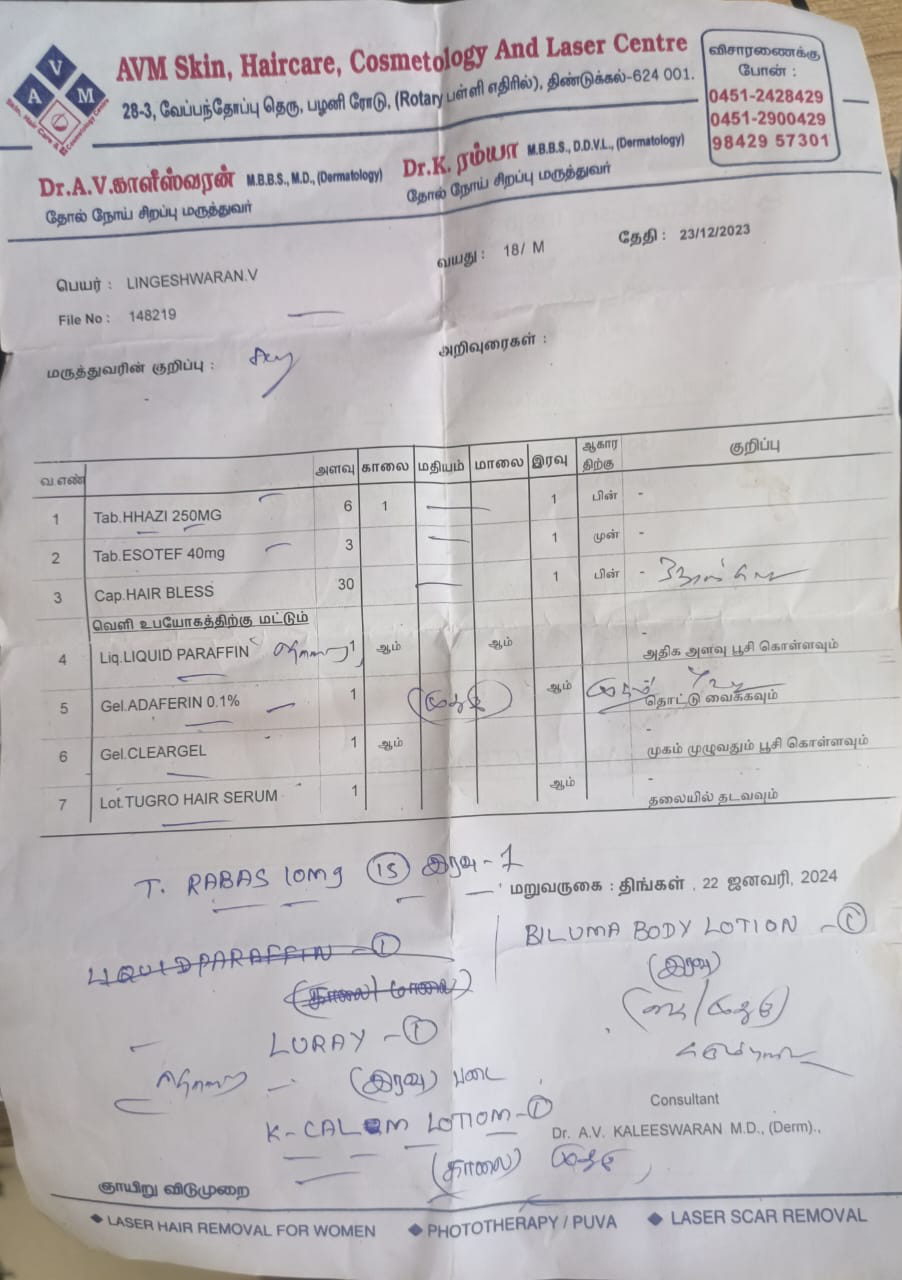 AVM Skin, Haircare, Cosmetology And Laser Centre
28-3, வேப்பந்தோப்பு தெரு, பழனி ரோடு, (Rotary பள்ளி எதிரில்), திண்டுக்கல்-624 001.
விசாரணைக்கு
போன் :
0451-2428429
0451-2900429
98429 57301
A V M
Dr.A.V.காளீஸ்வரன் M.B.B.S., M.D., (Dermatology)
தோல் நோய் சிறப்பு மருத்துவர்
Dr.K. ரம்யா M.B.B.S., D.D.V.L., (Dermatology)
தோல் நோய் சிறப்பு மருத்துவர்
பெயர் : LINGESHWARAN.V வயது : 18/ M தேதி : 23/12/2023
File No : 148219
மருத்துவரின் குறிப்பு : அறிவுரைகள் :
வ.எண் அளவு காலை மதியம் மாலை இரவு ஆகாரதிற்கு குறிப்பு
1 Tab.HHAZI 250MG 6 1 — 1 பின் -
2 Tab.ESOTEF 40mg 3 — 1 முன் -
3 Cap.HAIR BLESS 30 — 1 பின் -
வெளி உபயோகத்திற்கு மட்டும்
4 Liq.LIQUID PARAFFIN 1 ஆம் ஆம் - அதிக அளவு பூசி கொள்ளவும்
5 Gel.ADAFERIN 0.1% 1 ஆம் தொட்டு வைக்கவும்
6 Gel.CLEARGEL 1 ஆம் - முகம் முழுவதும் பூசி கொள்ளவும்
7 Lot.TUGRO HAIR SERUM 1 ஆம் - தலையில் தடவவும்
T. RABAS 10mg (15) இரவு - 1
மறுவருகை : திங்கள் , 22 ஜனவரி, 2024
LIQUID PARAFFIN - (1)
(காலை/மாலை)
BILUMA BODY LOTION - (1)
(இரவு)
LURAY - (1)
(இரவு)
K-CALAM LOTION - (1)
(காலை)
Consultant
Dr. A.V. KALEESWARAN M.D., (Derm).,
ஞாயிறு விடுமுறை
◆ LASER HAIR REMOVAL FOR WOMEN ◆ PHOTOTHERAPY / PUVA ◆ LASER SCAR REMOVAL